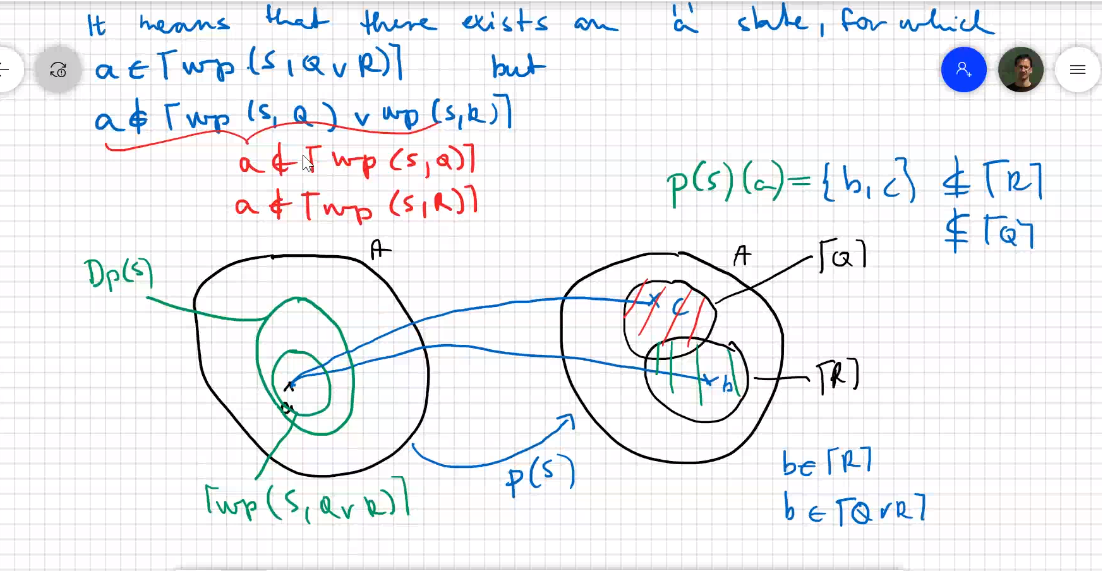 It means that there exists an "a" state, for which
a ∈ ⌈wp(S, Q ∨ R)⌉ but
a ∉ ⌈wp(S, Q) ∨ wp(S, R)⌉
a ∉ ⌈wp(S, Q)⌉
a ∉ ⌈wp(S, R)⌉
p(S)(a) = {b, c} ⊈ ⌈R⌉
⊈ ⌈Q⌉
Dp(S)
A
A
⌈Q⌉
c
a
b
⌈R⌉
p(S)
⌈wp(S, Q ∨ R)⌉
b ∈ ⌈R⌉
b ∈ ⌈Q ∨ R⌉